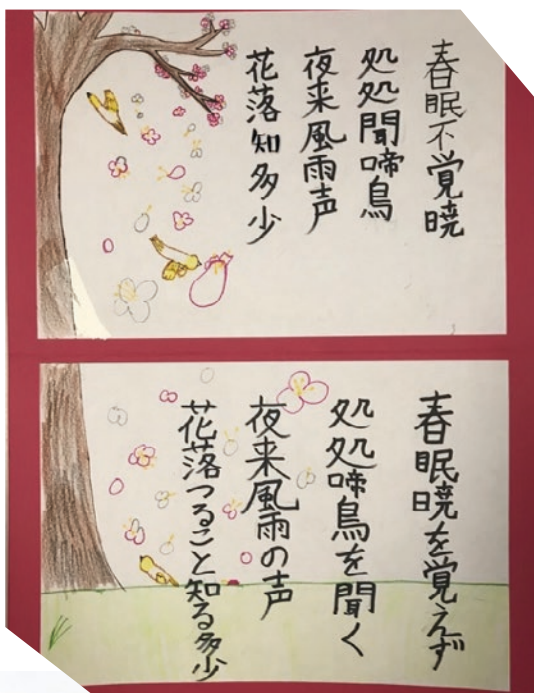 春眠不覚暁
処処聞啼鳥
夜来風雨声
花落知多少
春眠暁を覚えず
処処啼鳥を聞く
夜来風雨の声
花落つること知る多少